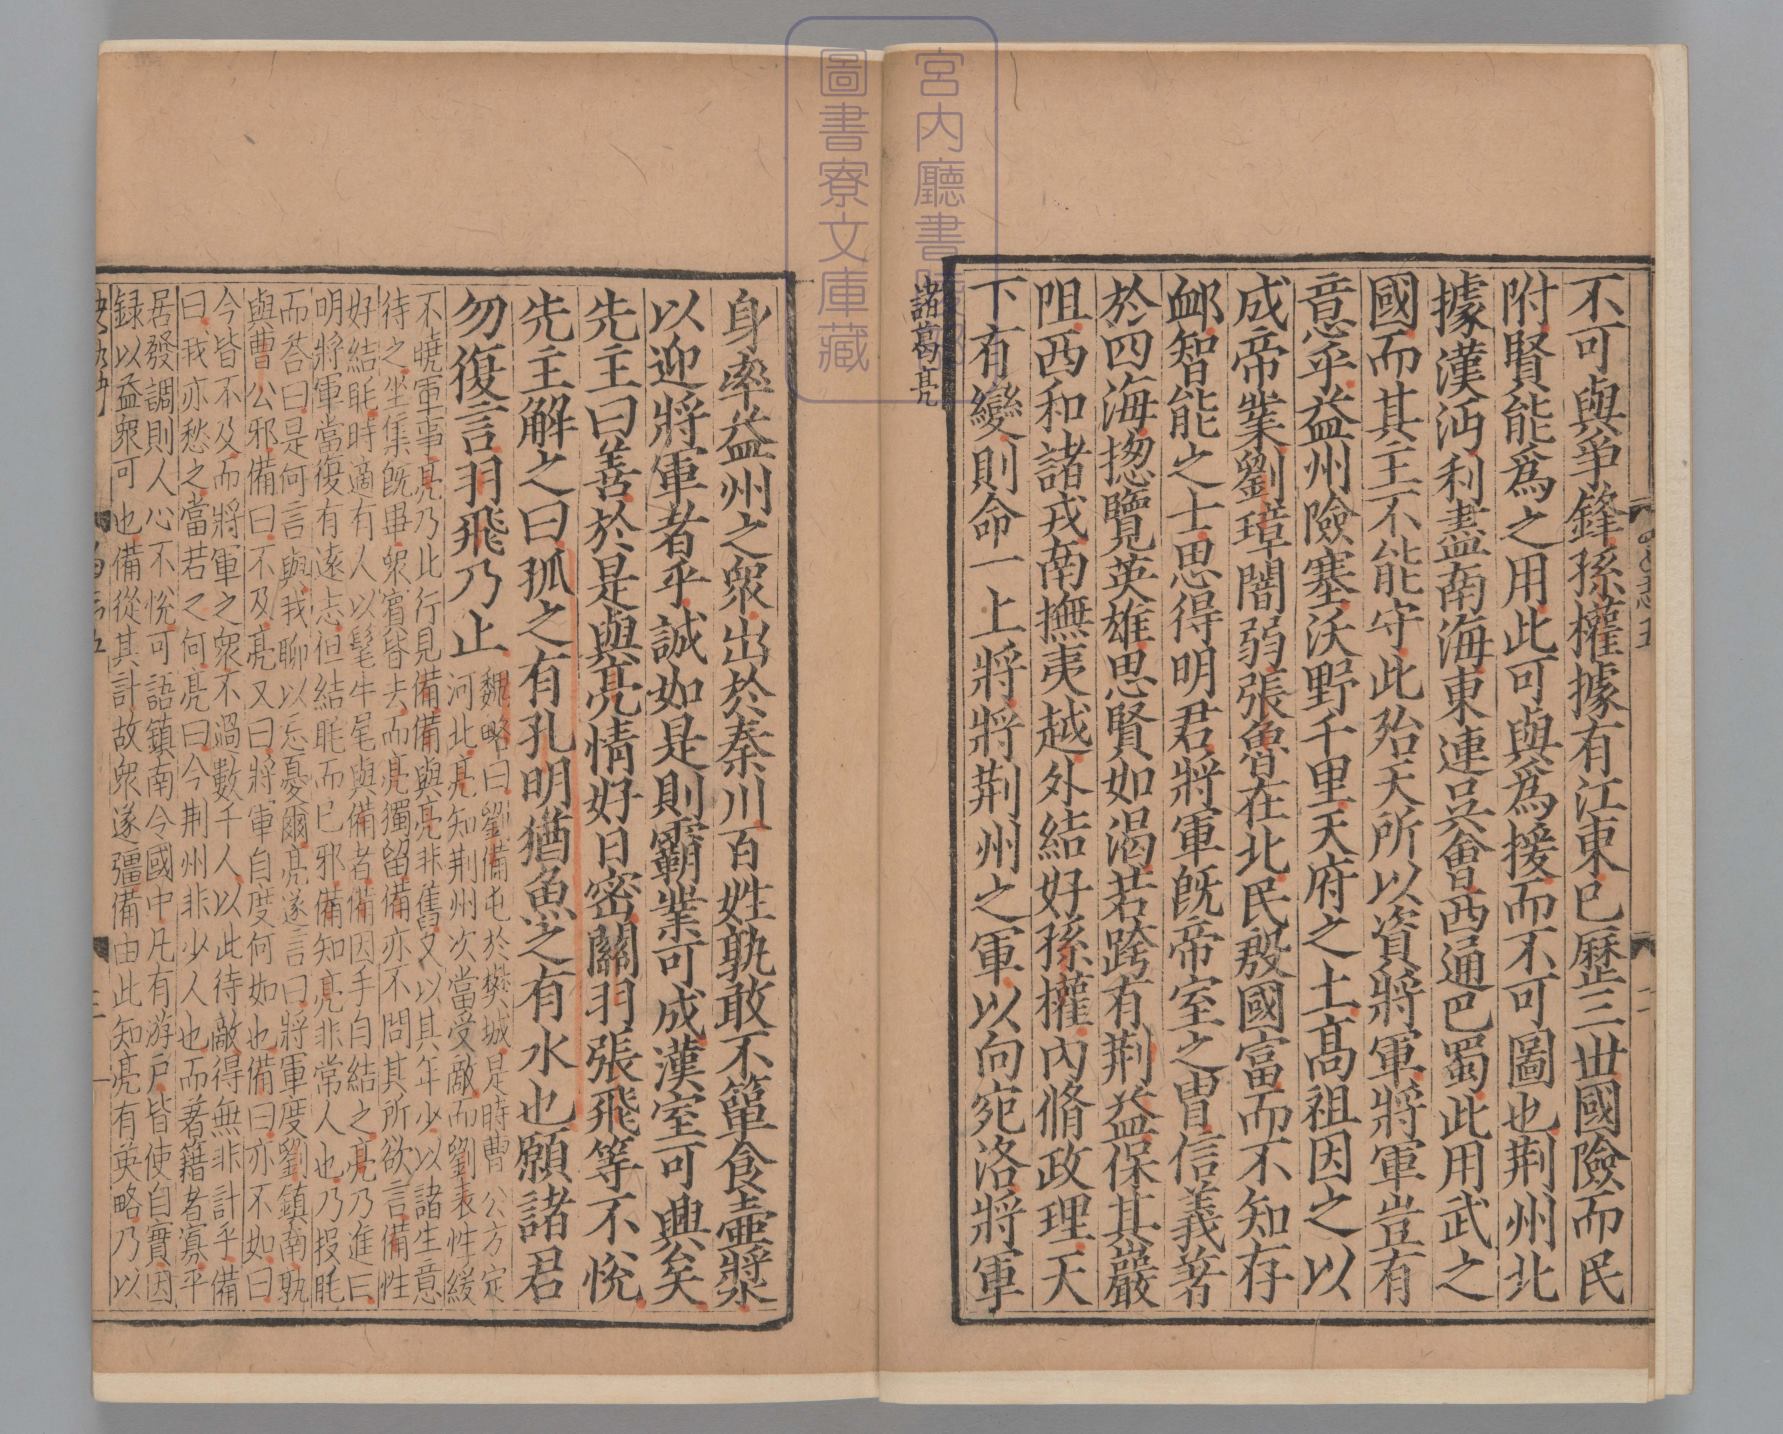 不可與爭鋒孫權據有江東已歷三世國險而民
附賢能爲之用此可與爲援而不可圖也荆州北
據漢沔利盡南海東連吳會西通巴蜀此用武之
國而其主不能守此殆天所以資將軍將軍豈有
意乎益州險塞沃野千里天府之土高祖因之以
成帝業劉璋闇弱張魯在北民殷國富而不知存
卹智能之士思得明君將軍旣帝室之胄信義著
於四海揔覽英雄思賢如渴若跨有荆益保其巖
阻西和諸戎南撫夷越外結好孫權內脩政理天
下有變則命一上將將荆州之軍以向宛洛將軍
諸葛亮
宮內廳書陵部
圖書寮文庫藏
身率益州之衆出於秦川百姓孰敢不簞食壺漿
以迎將軍者乎誠如是則霸業可成漢室可興矣
先主曰善於是與亮情好日密關羽張飛等不悅
先主解之曰孤之有孔明猶魚之有水也願諸君
勿復言羽飛乃止
魏略曰劉備屯於樊城是時曹公方定
河北亮知荆州次當受敵而劉表性緩
不曉軍事亮乃此行見備備與亮非舊又以其年少以諸生意
待之坐集旣畢衆賓皆去而亮獨留備亦不問其所欲言備性
好結毦時適有人以髦牛尾與備者備因手自結之亮乃進曰
明將軍當復有遠志但結毦而已邪備知亮非常人也乃投毦
而荅曰是何言與我聊以忘憂爾亮遂言曰將軍度劉鎮南孰
與曹公邪備曰不及亮又曰將軍自度何如也備曰亦不如曰
今皆不及而將軍之衆不過數千人以此待敵得無非計乎備
曰我亦愁之當若之何亮曰今荆州非少人也而著籍者寡平
居發調則人心不悅可語鎮南令國中凡有游戶皆使自實因
錄以益衆可也備從其計故衆遂彊備由此知亮有英略乃以